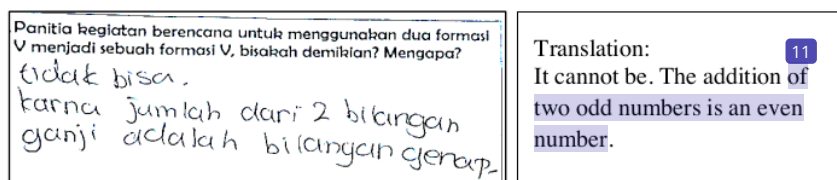 Panitia kegiatan berencana untuk menggunakan dua formasi
V menjadi sebuah formasi V, bisakah demikian? Mengapa?
tidak bisa.
karna jumlah dari 2 bilangan
ganji adalah bilangan genap.
Translation:
11
It cannot be. The addition of
two odd numbers is an even
number.